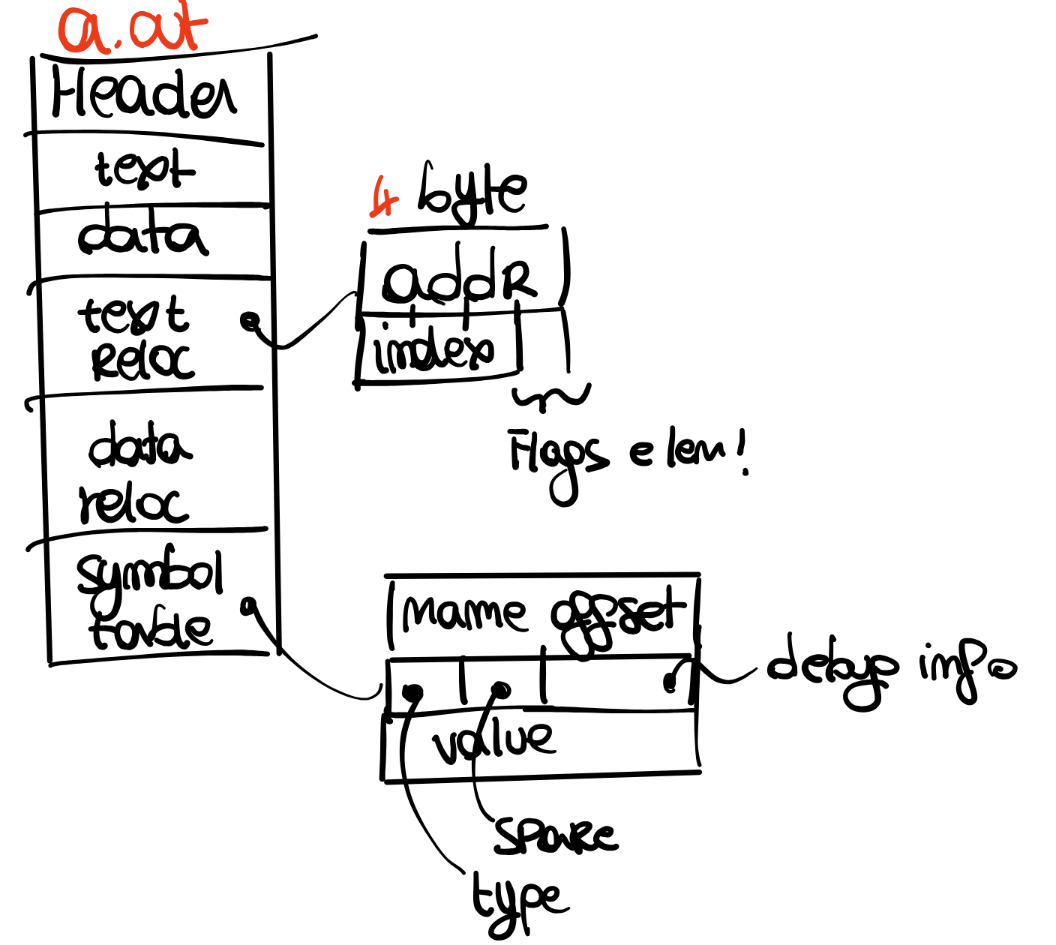 a.out
Header
text
data
text
Reloc
data
reloc
symbol
table
4 byte
addR
index
Flags e len!
name offset
value
debug info
spare
type